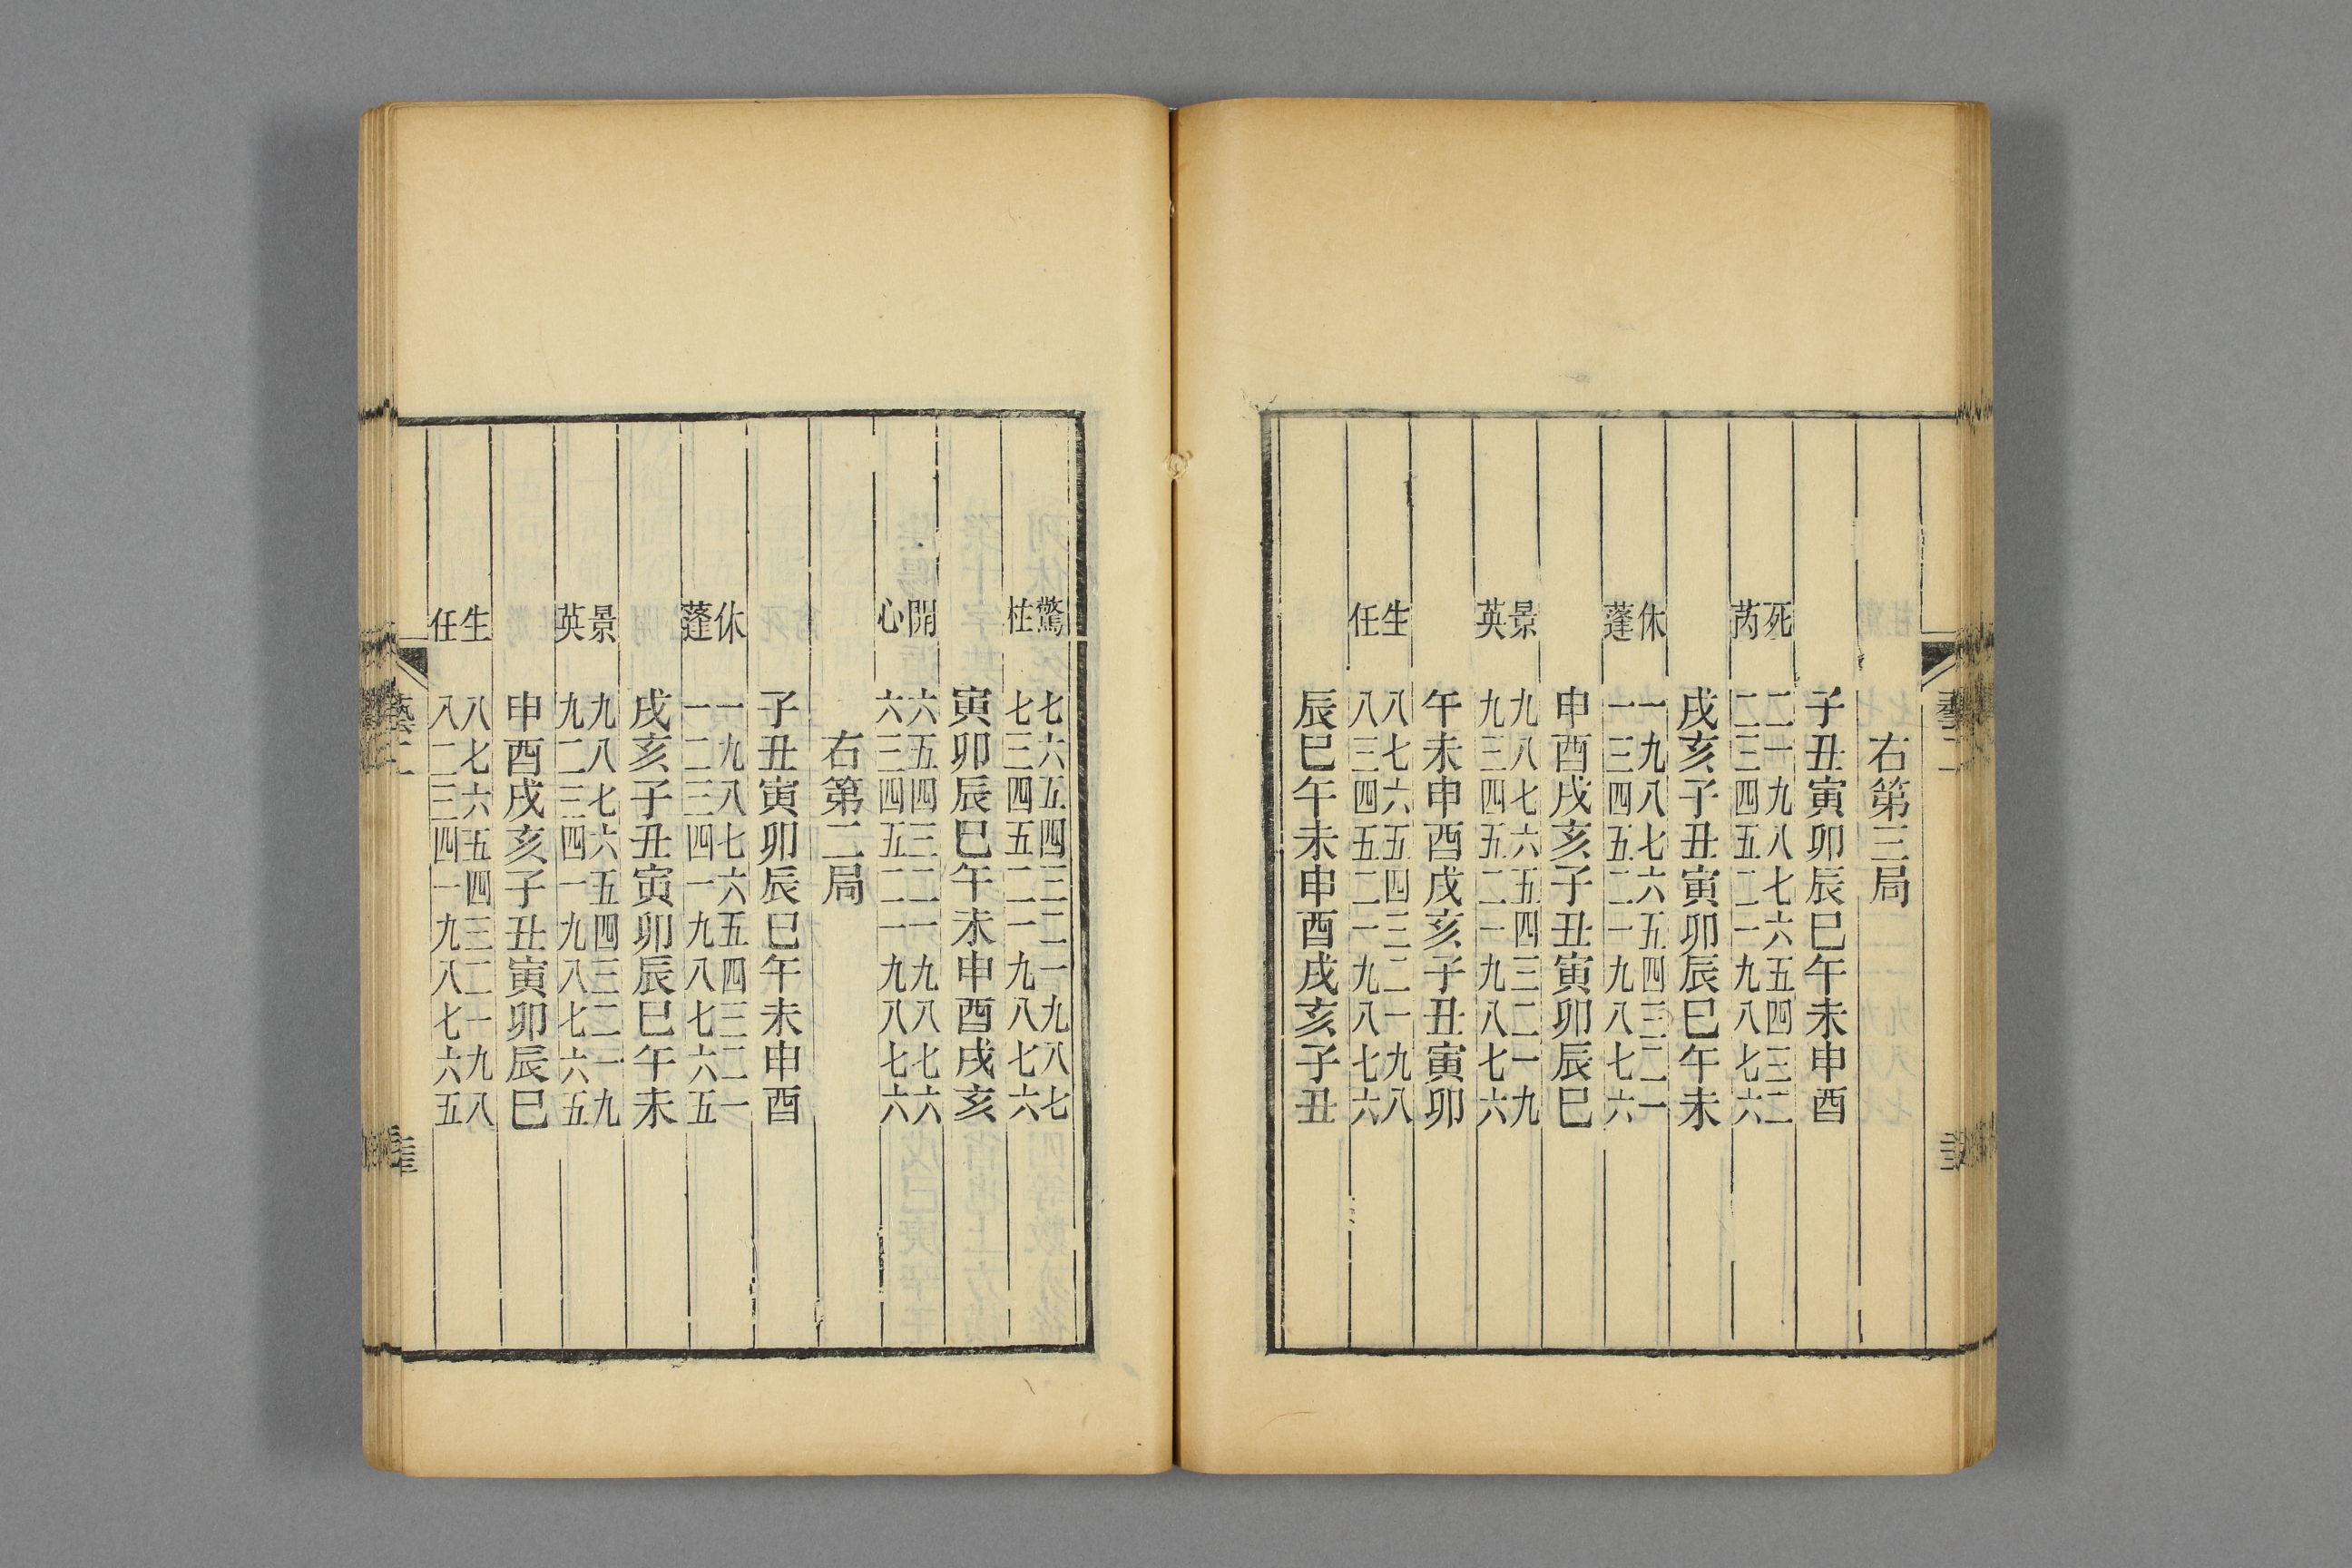 右第三局
子丑寅卯辰巳午未申酉
死 二一九八七六五四三二
芮 二三四五二一九八七六
戌亥子丑寅卯辰巳午未
休 一九八七六五四三二一
蓬 一三四五二一九八七六
申酉戌亥子丑寅卯辰巳
景 九八七六五四三二一九
英 九三四五二一九八七六
午未申酉戌亥子丑寅卯
生 八七六五四三二一九八
任 八三四五二一九八七六
辰巳午未申酉戌亥子丑
驚 七六五四三二一九八七
柱 七三四五二一九八七六
寅卯辰巳午未申酉戌亥
開 六五四三二一九八七六
心 六三四五二一九八七六
右第二局
子丑寅卯辰巳午未申酉
休 一九八七六五四三二一
蓬 一二三四一九八七六五
戌亥子丑寅卯辰巳午未
景 九八七六五四三二一九
英 九二三四一九八七六五
申酉戌亥子丑寅卯辰巳
生 八七六五四三二一九八
任 八二三四一九八七六五